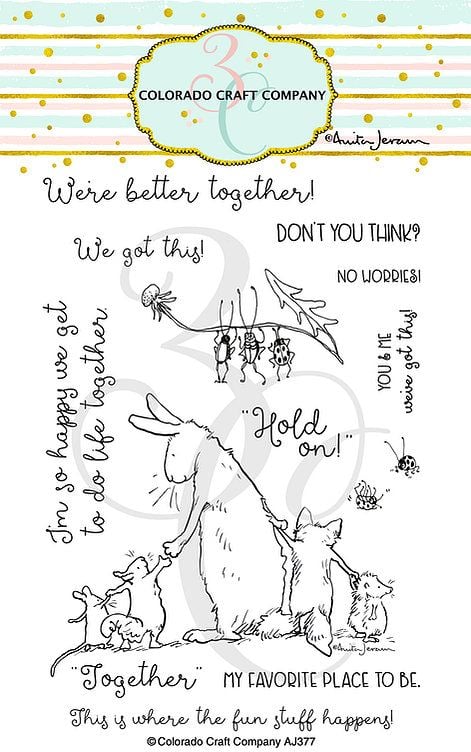 3C
COLORADO CRAFT COMPANY
©Anita Jeram
We're better together!
DON'T YOU THINK?
We got this!
NO WORRIES!
I'm so happy we get
to do life together.
YOU & ME
we've got this!
"Hold
on!"
©Anita Jeram
"Together"
MY FAVORITE PLACE TO BE.
This is where the fun stuff happens!
©Colorado Craft Company AJ377